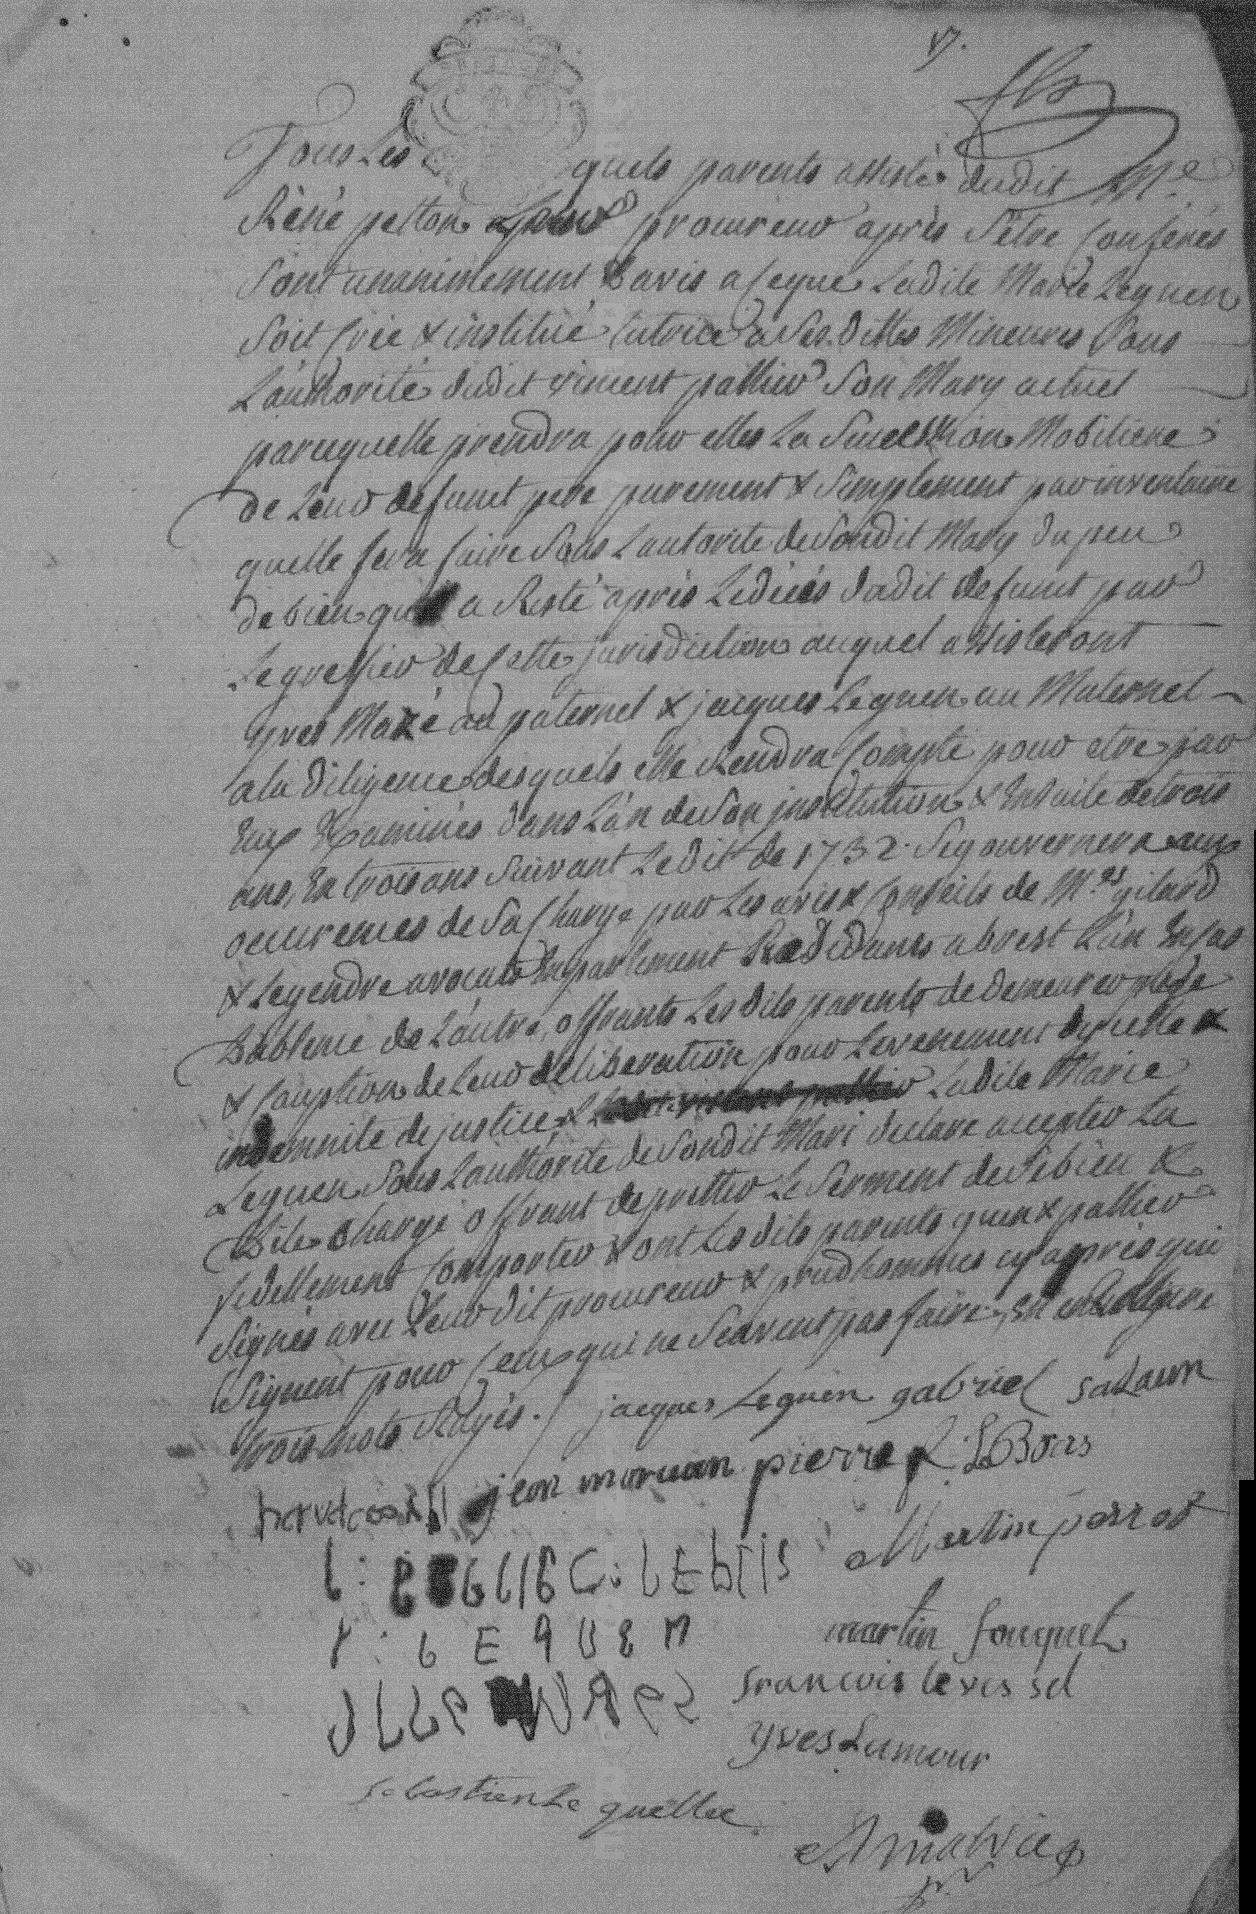 Tous Les quels parents assisté dudit Me
Réné pelton procureur après s'être Conferés
Sont unanimement d'avis a Ceque Ladite Marie Leguen
Soit Créé & instituée tutrice a Ses dittes Mineures Sous
L'authorité dudit vincent pallier Son Mary actuel
parcequelle prendra pour elles La Succession Mobiliere
de Leur defunct pere purement & Simplement par inventaire
quelle fera faire Sous Lautorité de Sondit Mary du peu
de bien qu'il a Resté après Ledécés dudit defunct par
Le greffier de Cette jurisdiction auquel assisteront
yves Mazé au paternel & jacques Leguen au Maternel
a la Diligence desquels elle Rendra Compte pour etre par
Eux Examinés dans L'an de Son institution & Ensuite de trois
ans, En trois ans Suivant Ledit de 1732. Se gouvernera aux
occurences de Sa Charge par Les avis & Conseils de M.es gilard
& Legendre avocats En parlement Residants a brest L'un En Cas
D'absence de L'autre, offrants Les dits parents de demeurer plége
& Cauption de Leur deliberation pour Levenement dycelle &
indemnité de justice & Ladite Marie
Leguen Sous L'authorité de Sondit Mari declare accepter La
Dite Charge offrant de pretter Le Serment de Se bien &
fidellement Comporter & ont Les dits parents quen & pallier
Signés avec Leur dit procureur & prudhommes cy après qui
Signent pour Ceux qui ne Scavent pas faire, En
trois mots Rayés. / jacques Leguen gabriel Salaun
jean morvan pierre LBoas
Martin perrot
Y : L E Q U E N
martin fouquet
francois le
yves Lamour
Sebastien Le quellec